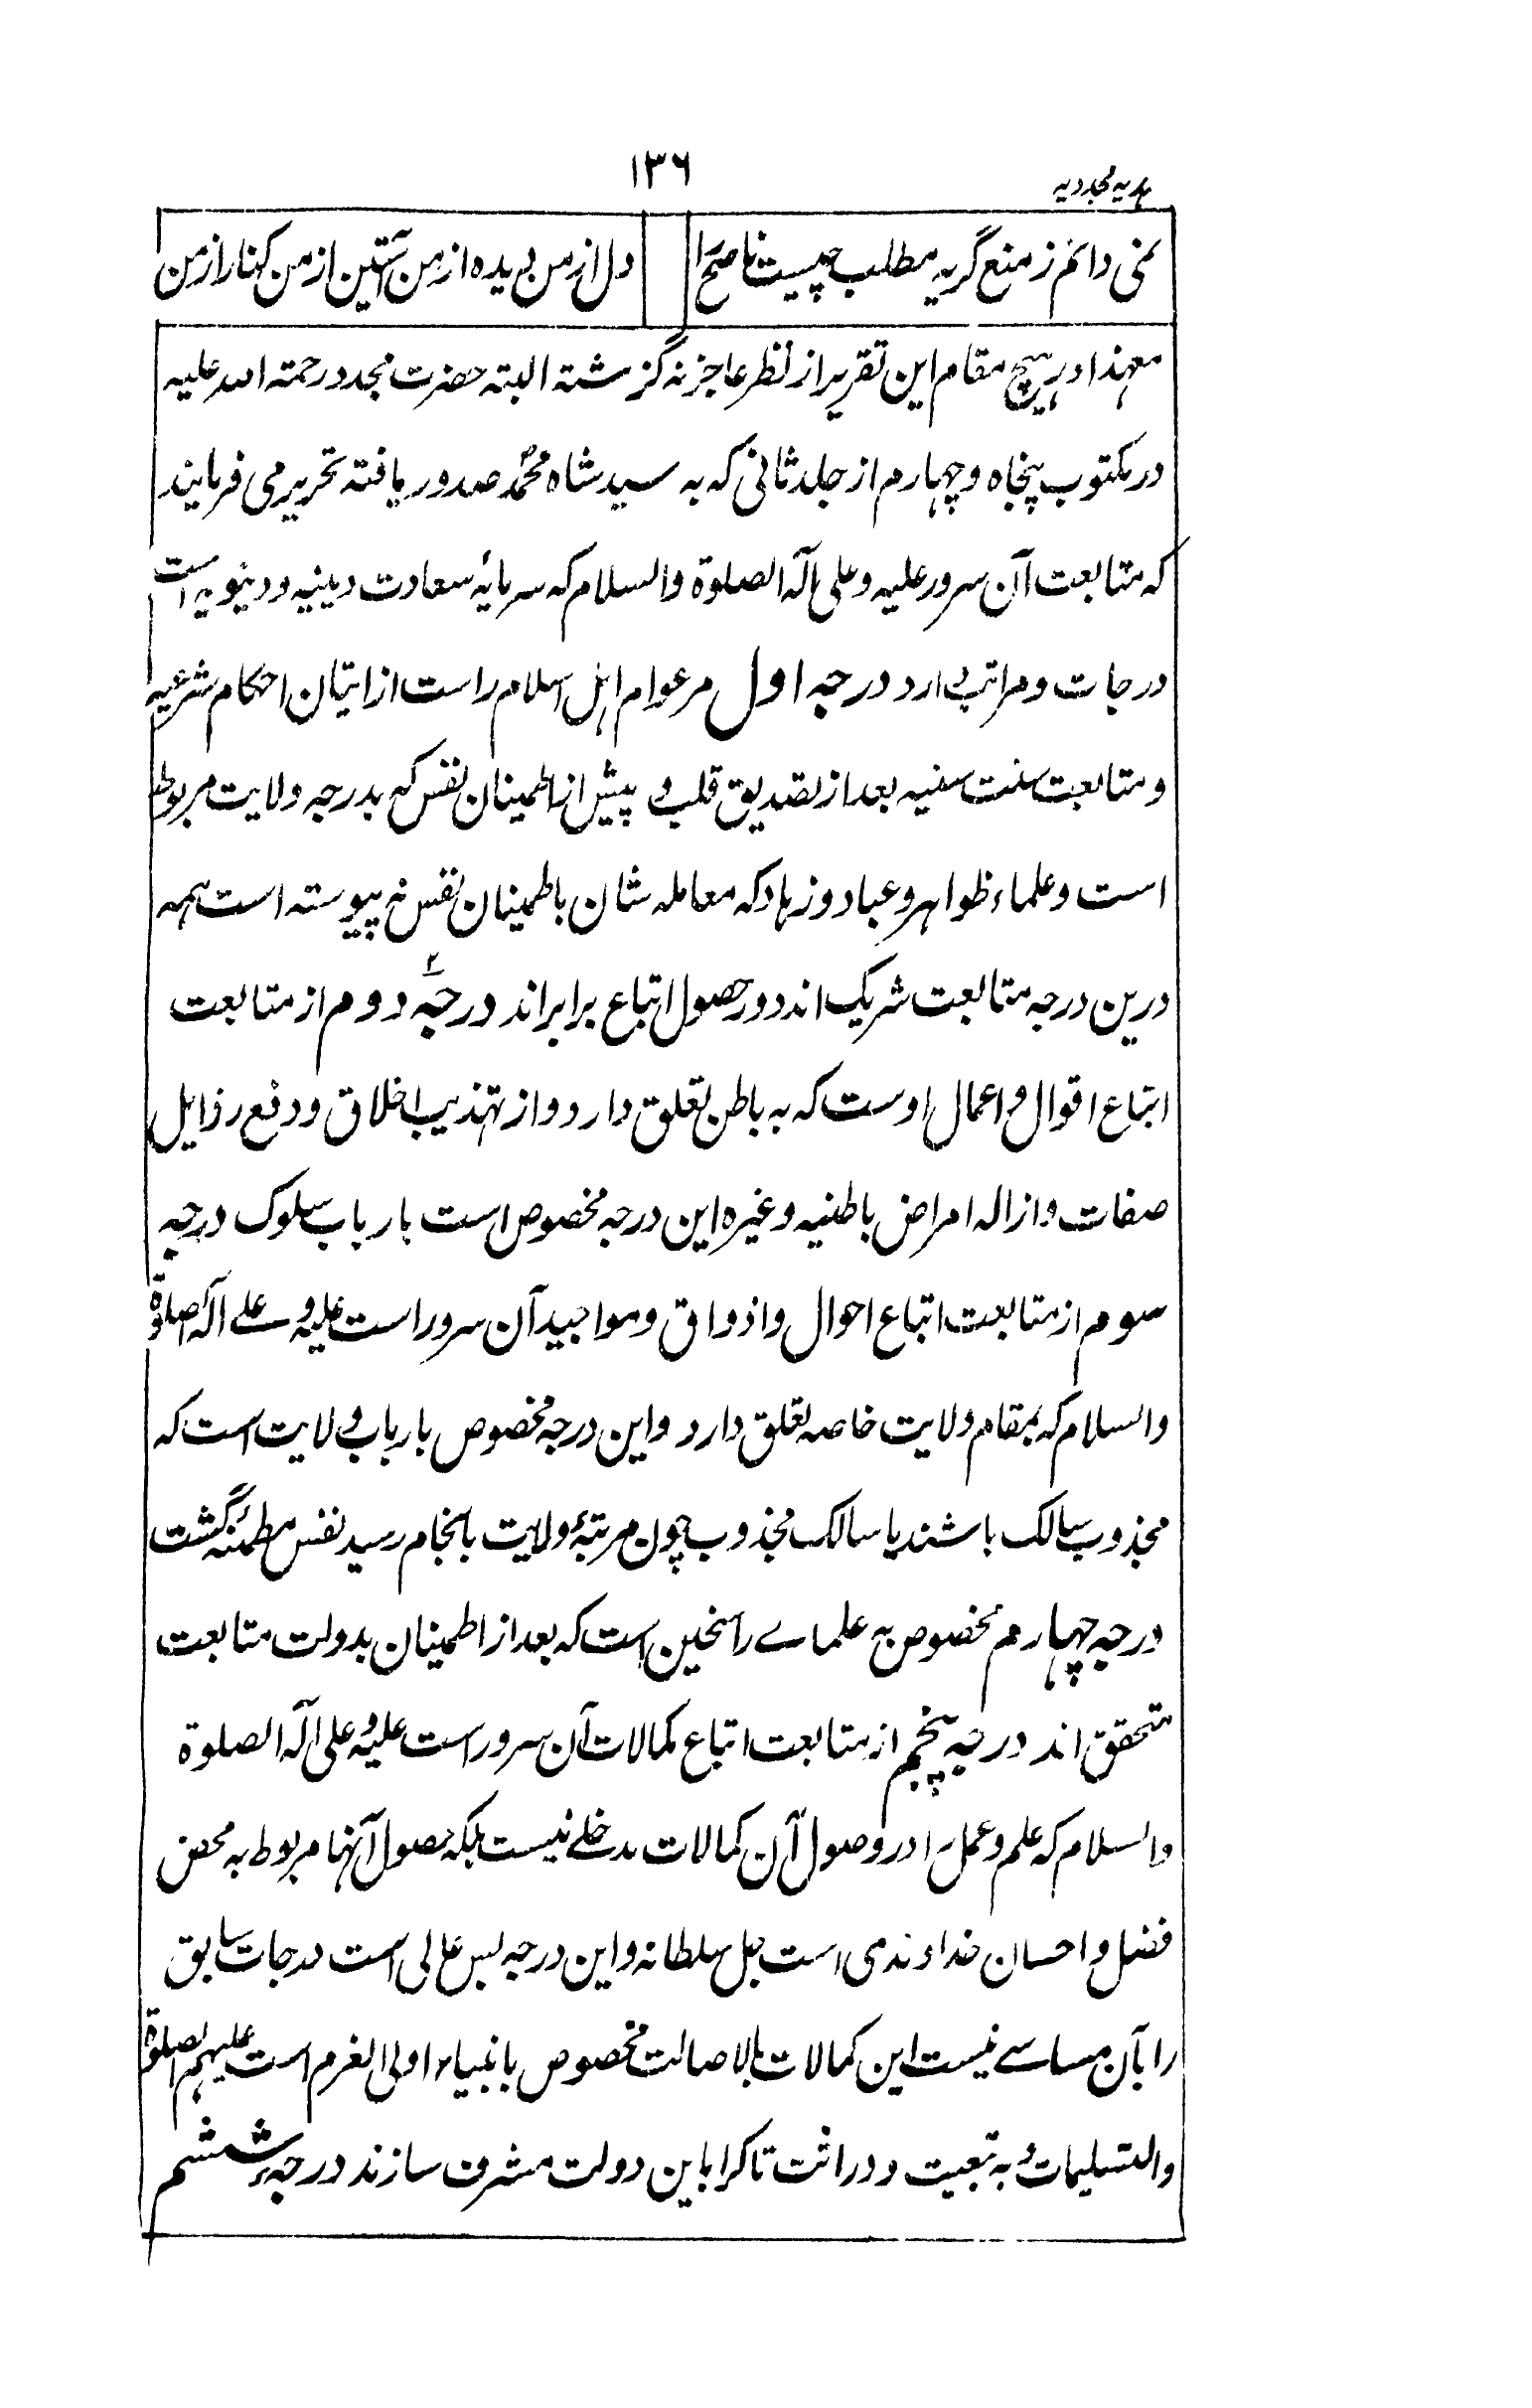 ۱۳۶
ہدیہ مجددیہ
نمی دانم ز منع گریہ مطلب چیست ناصح را
دل از من دیدہ از من آستین از من کنار از من
معہذا در ہیچ مقام این تقریر از نظر عاجز نہ گزشتہ البتہ حضرت مجدد رحمتہ اللہ علیہ
در مکتوب پنجاہ و چہارم از جلد ثانی کہ بہ سید شاہ محمدؐ صدور یافتہ تحریر می فرمایند
کہ متابعت آن سرور علیہ و علی آلہ الصلوۃ والسلام کہ سرمایۂ سعادت دینیہ و دنیویہ است
درجات و مراتب دارد درجہ اول مر عوام اہل اسلام راست از اتیان احکام شرعیہ
و متابعت سنت سنیہ بعد از تصدیق قلب و پیش از اطمینان نفس کہ بدرجہ ولایت مربوط
است و علماء ظواہر و عباد و زہاد کہ معاملہ شان باطمینان نفس نہ پیوستہ است ہمہ
درین درجہ متابعت شریک اند و در حصول اتباع برابر اند درجۂ۲ دوم از متابعت
اتباع اقوال و اعمال اوست کہ بہ باطن تعلق دارد و از تہذیب اخلاق و دفع رذایل
صفات و ازالہ امراض باطنیہ و غیرہ این درجہ مخصوص است بارباب سلوک درجہ
سوم از متابعت اتباع احوال و اذواق و مواجید آن سرور است علیہ و علے آلہ الصلوۃ
والسلام کہ بمقام ولایت خاصہ تعلق دارد و این درجہ مخصوص بارباب ولایت است کہ
مجذوب سالک باشند یا سالک مجذوب چون مرتبۂ ولایت بانجام رسید نفس مطمئنہ گشت
درجہ چہارم مخصوص بہ علماے راسخین است کہ بعد از اطمینان بدولت متابعت
متحقق اند درجہ پنجم از متابعت اتباع کمالات آن سرور است علیہ و علی آلہ الصلوۃ
والسلام کہ علم و عمل را در وصول آن کمالات مدخلے نیست بلکہ حصول آنہا مربوط بہ محض
فضل و احسان خداوندی است جل سلطانہ و این درجہ بس عالی است درجات سابق
را بآن مساسے نیست این کمالات بالاصالت مخصوص بانبیاء اولی العزم است علیہم الصلوۃ
والتسلیمات و بہ تبعیت و وراثت تا کرا باین دولت مشرف سازند درجۂ ششم